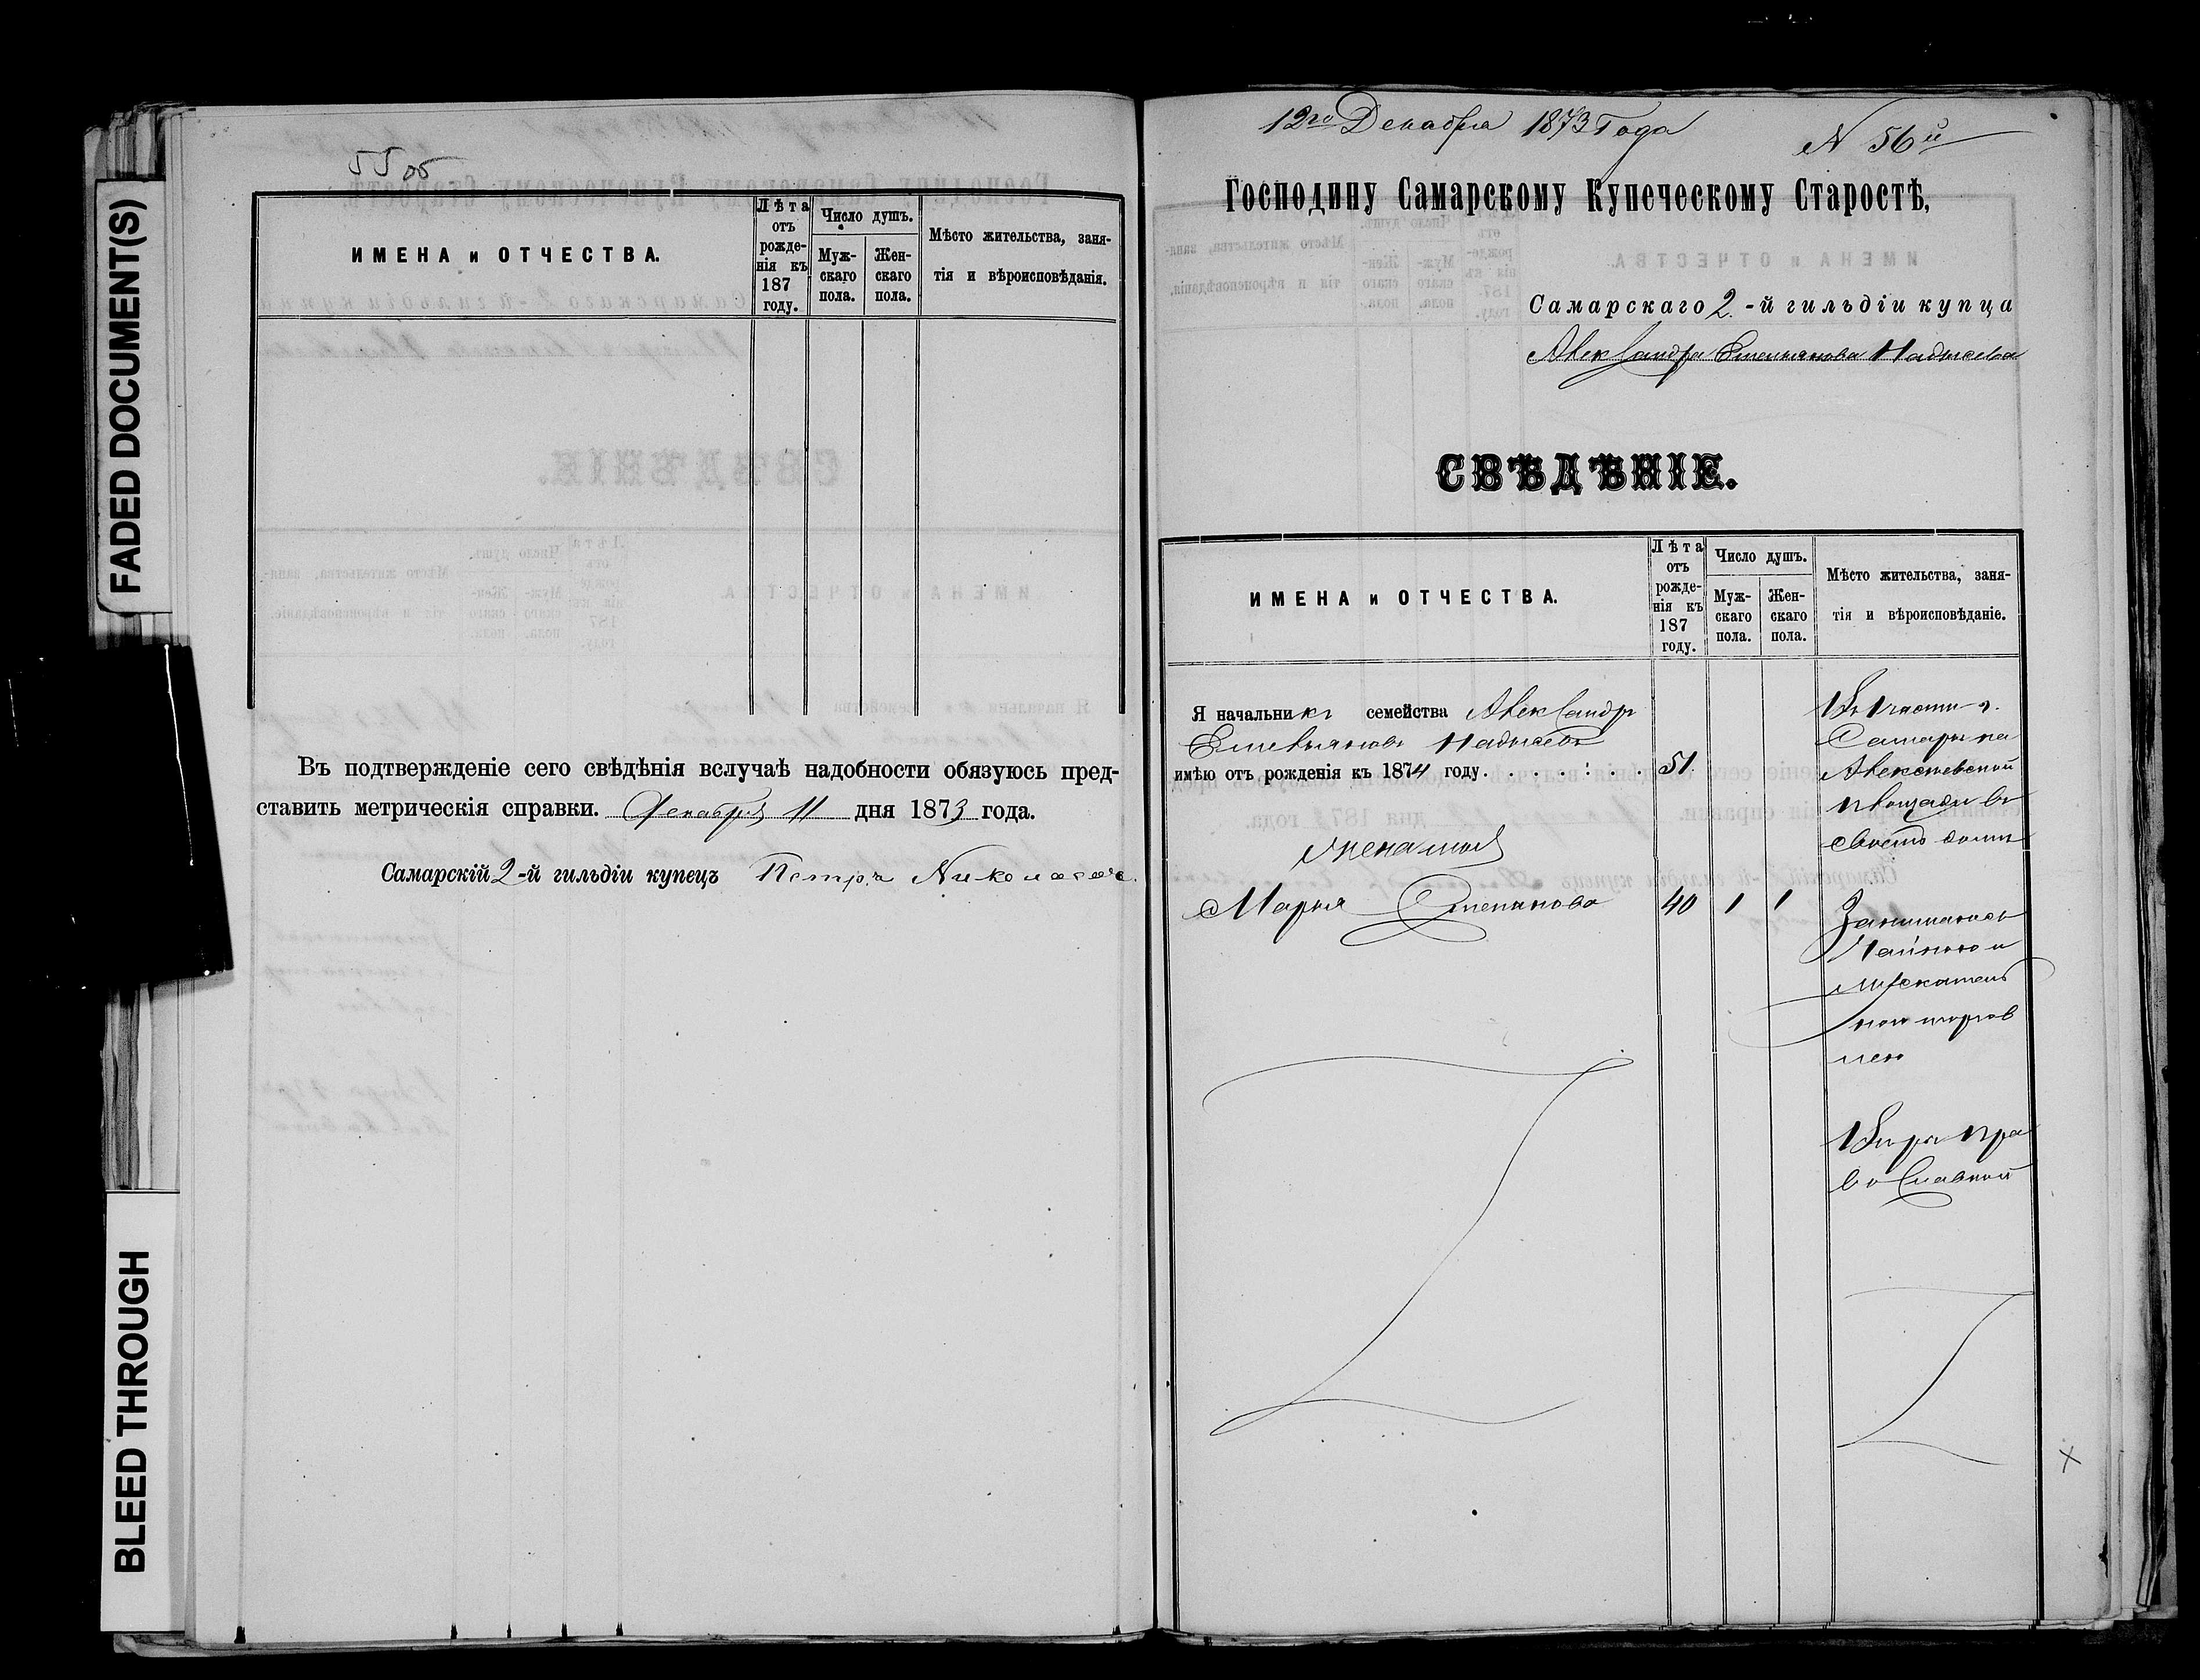 FADED DOCUMENT(S)
BLEED THROUGH
55 об
ИМЕНА и ОТЧЕСТВА.
Лѣта отъ рожде-нія къ 187 году.
Число душъ.
Муж-скаго пола.
Жен-скаго пола.
Мѣсто жительства, заня-
тія и вѣроисповѣданія.
Въ подтвержденіе сего свѣдѣнія вслучаѣ надобности обязуюсь пред-
ставить метрическія справки. Декабря 11 дня 1873 года.
Самарскій 2-й гильдіи купецъ Петръ Николаевъ.
12го Декабря 1873 Года
N 56й
Господину Самарскому Купеческому Старостѣ,
Самарскаго 2.-й гильдіи купца
Александра Емельянова Надысева
СВѢДѢНІЕ.
ИМЕНА и ОТЧЕСТВА.
Лѣта отъ рожде-нія къ 187 году.
Число душъ.
Муж-скаго пола.
Жен-скаго пола.
Мѣсто жительства, заня-
тія и вѣроисповѣданіе.
Я начальникъ семейства Александръ
Емельяновъ Надысевъ
имѣю отъ рожденія къ 1874 году. . . . . . . 51
жена моя
Марья Степанова 40 1 1
Въ 1 части г.
Самары на
Алексѣевской
площади въ
своемъ домѣ
Занимаюсь
Чайною и
москатель
ною торгов
лею
Вѣры пра
вославной